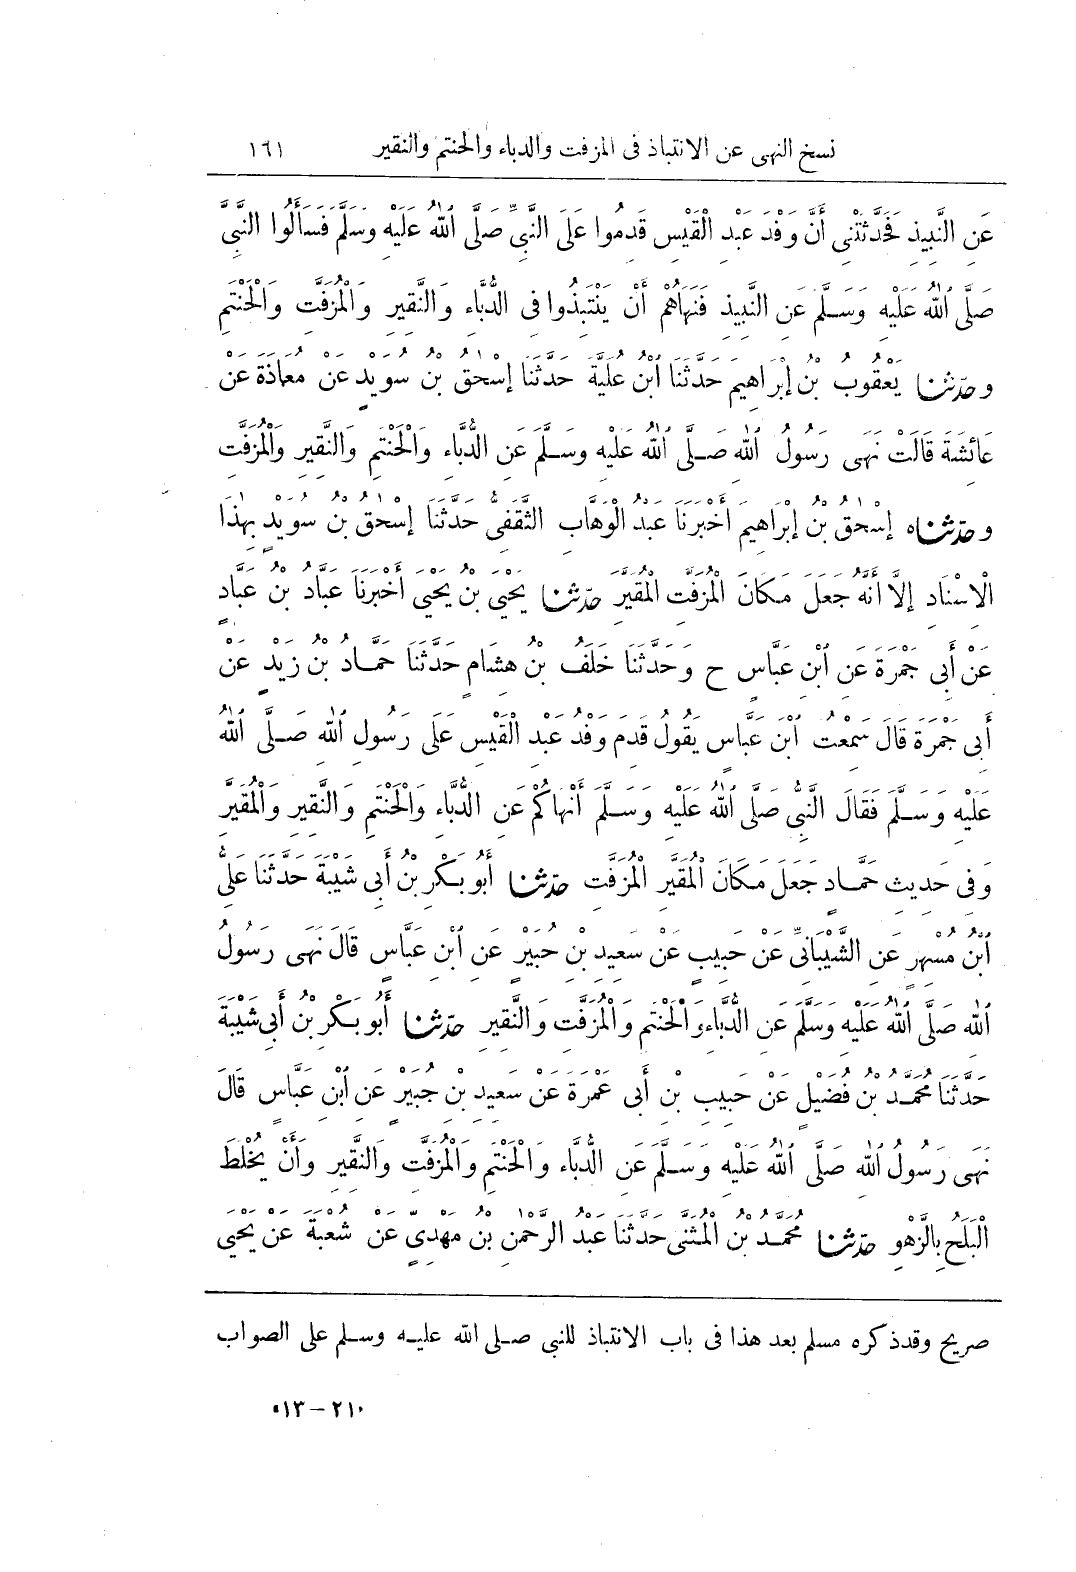 نسخ النهى عن الانتباذ فى المزفت والدباء والحنتم والنقير ١٦١
عَنِ النَّبِيذِ فَحَدَّثَتْنِى أَنَّ وَفْدَ عَبْدِ الْقَيْسِ قَدِمُوا عَلَى النَّبِىِّ صَلَّى اللهُ عَلَيْهِ وَسَلَّمَ فَسَأَلُوا النَّبِىَّ
صَلَّى اللهُ عَلَيْهِ وَسَلَّمَ عَنِ النَّبِيذِ فَنَهَاهُمْ أَنْ يَنْتَبِذُوا فِى الدُّبَّاءِ وَالنَّقِيرِ وَالْمُزَفَّتِ وَالْحَنْتَمِ
وحَدَّثَنَا يَعْقُوبُ بْنُ إِبْرَاهِيمَ حَدَّثَنَا ابْنُ عُلَيَّةَ حَدَّثَنَا إِسْحٰقُ بْنُ سُوَيْدٍ عَنْ مُعَاذَةَ عَنْ
عَائِشَةَ قَالَتْ نَهَى رَسُولُ اللهِ صَلَّى اللهُ عَلَيْهِ وَسَلَّمَ عَنِ الدُّبَّاءِ وَالْحَنْتَمِ وَالنَّقِيرِ وَالْمُزَفَّتِ
وحَدَّثَنَاه إِسْحٰقُ بْنُ إِبْرَاهِيمَ أَخْبَرَنَا عَبْدُ الْوَهَّابِ الثَّقَفِىُّ حَدَّثَنَا إِسْحٰقُ بْنُ سُوَيْدٍ بِهٰذَا
الْإِسْنَادِ إِلَّا أَنَّهُ جَعَلَ مَكَانَ الْمُزَفَّتِ الْمُقَيَّرَ حَدَّثَنَا يَحْيَى بْنُ يَحْيَى أَخْبَرَنَا عَبَّادُ بْنُ عَبَّادٍ
عَنْ أَبِى جَمْرَةَ عَنِ ابْنِ عَبَّاسٍ ح وَحَدَّثَنَا خَلَفُ بْنُ هِشَامٍ حَدَّثَنَا حَمَّادُ بْنُ زَيْدٍ عَنْ
أَبِى جَمْرَةَ قَالَ سَمِعْتُ ابْنَ عَبَّاسٍ يَقُولُ قَدِمَ وَفْدُ عَبْدِ الْقَيْسِ عَلَى رَسُولِ اللهِ صَلَّى اللهُ
عَلَيْهِ وَسَلَّمَ فَقَالَ النَّبِىُّ صَلَّى اللهُ عَلَيْهِ وَسَلَّمَ أَنْهَاكُمْ عَنِ الدُّبَّاءِ وَالْحَنْتَمِ وَالنَّقِيرِ وَالْمُقَيَّرِ
وَفِى حَدِيثِ حَمَّادٍ جَعَلَ مَكَانَ الْمُقَيَّرِ الْمُزَفَّتِ حَدَّثَنَا أَبُو بَكْرِ بْنُ أَبِى شَيْبَةَ حَدَّثَنَا عَلِىُّ
ابْنُ مُسْهِرٍ عَنِ الشَّيْبَانِىِّ عَنْ حَبِيبٍ عَنْ سَعِيدِ بْنِ جُبَيْرٍ عَنِ ابْنِ عَبَّاسٍ قَالَ نَهَى رَسُولُ
اللهِ صَلَّى اللهُ عَلَيْهِ وَسَلَّمَ عَنِ الدُّبَّاءِ وَالْحَنْتَمِ وَالْمُزَفَّتِ وَالنَّقِيرِ حَدَّثَنَا أَبُو بَكْرِ بْنُ أَبِى شَيْبَةَ
حَدَّثَنَا مُحَمَّدُ بْنُ فُضَيْلٍ عَنْ حَبِيبِ بْنِ أَبِى عَمْرَةَ عَنْ سَعِيدِ بْنِ جُبَيْرٍ عَنِ ابْنِ عَبَّاسٍ قَالَ
نَهَى رَسُولُ اللهِ صَلَّى اللهُ عَلَيْهِ وَسَلَّمَ عَنِ الدُّبَّاءِ وَالْحَنْتَمِ وَالْمُزَفَّتِ وَالنَّقِيرِ وَأَنْ يُخْلَطَ
الْبَلَحُ بِالزَّهْوِ حَدَّثَنَا مُحَمَّدُ بْنُ الْمُثَنَّى حَدَّثَنَا عَبْدُ الرَّحْمٰنِ بْنُ مَهْدِىٍّ عَنْ شُعْبَةَ عَنْ يَحْيَى
صريح وقد ذكره مسلم بعد هذا فى باب الانتباذ للنبى صلى الله عليه وسلم على الصواب
٢١٠ – ١٣٠